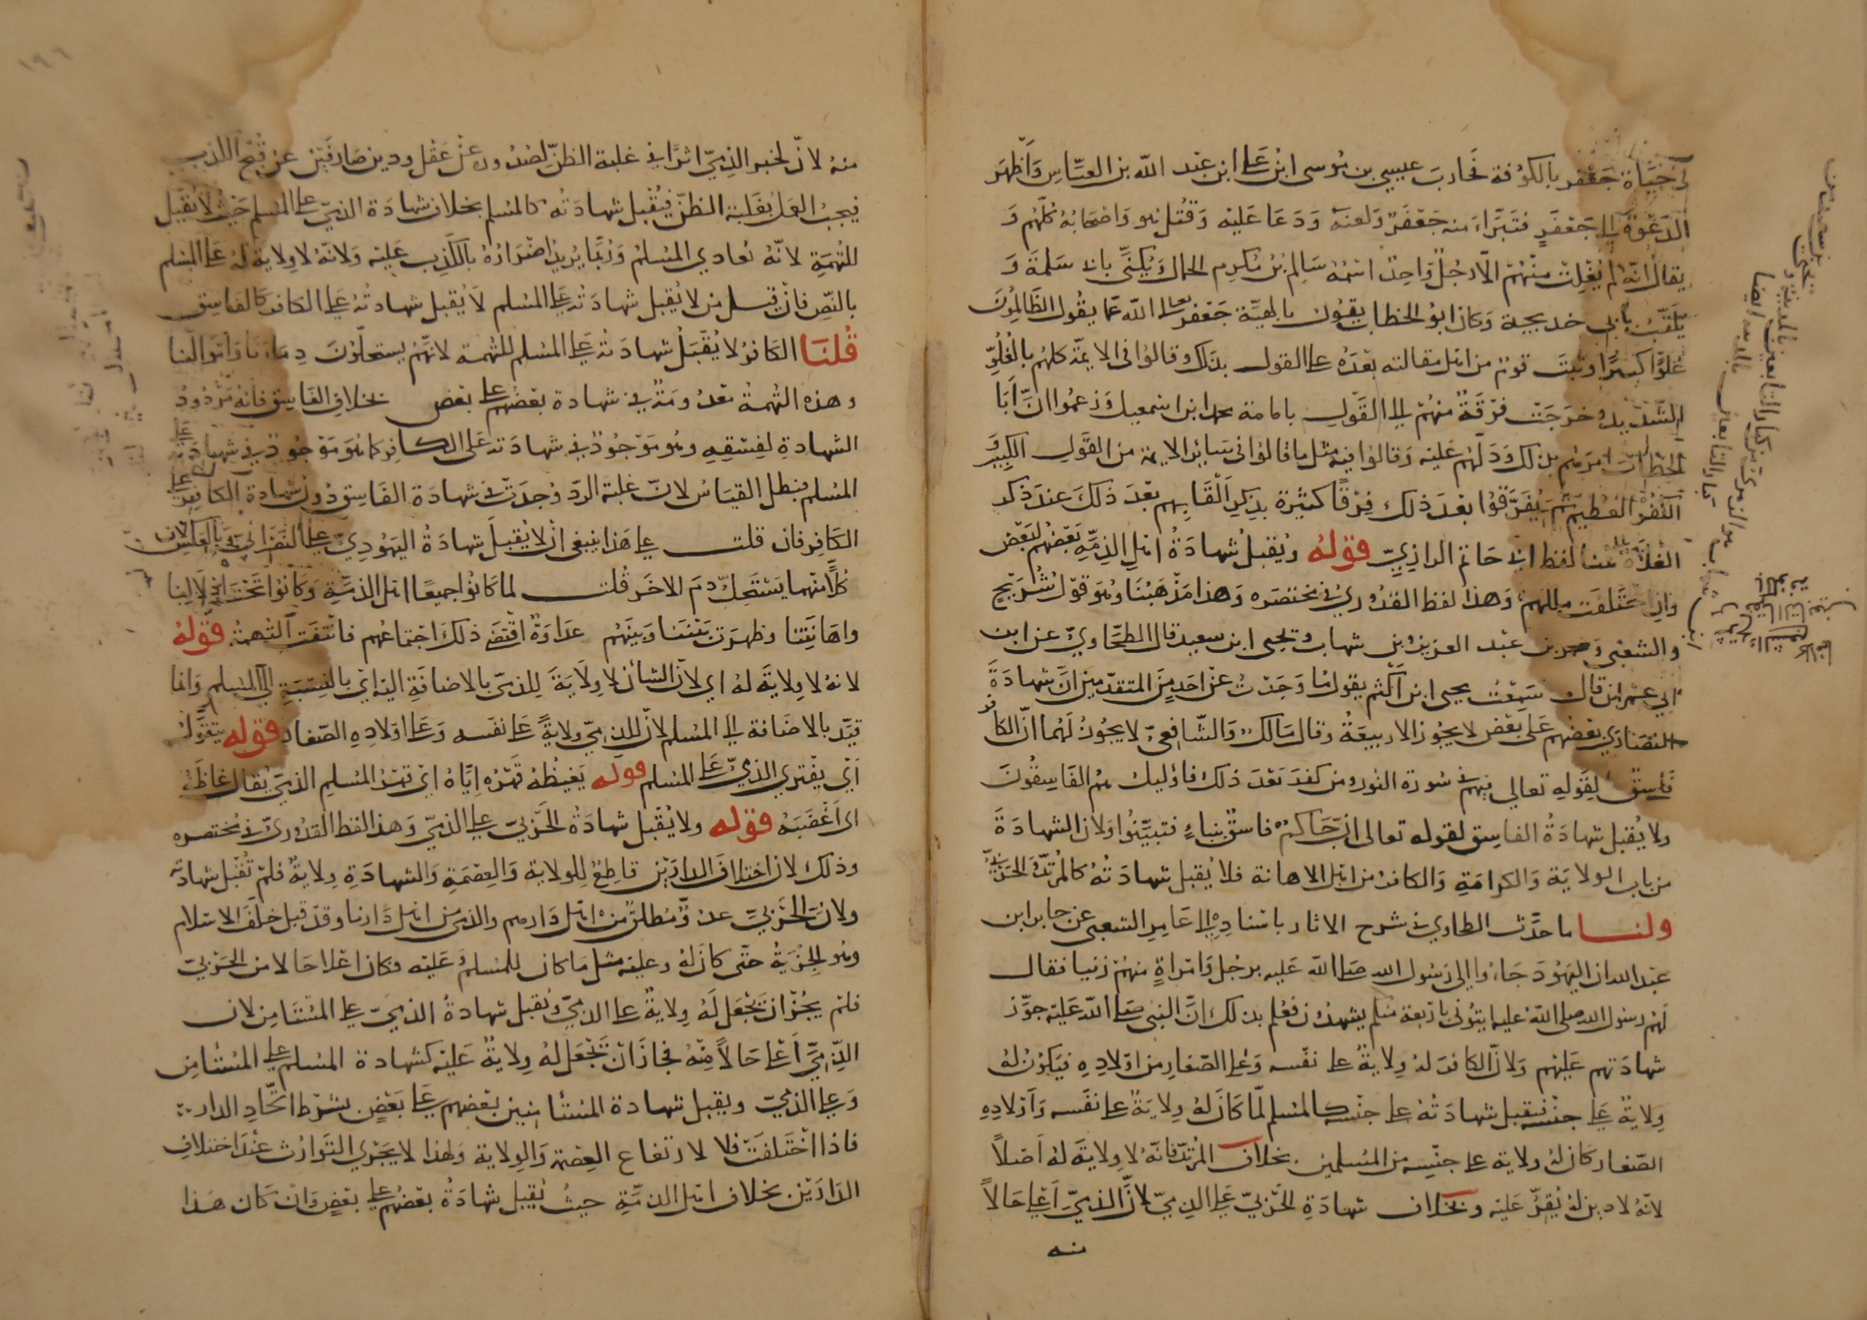 في حياة جعفر بالكوفة فحارب عيسى بن موسى ابن علي ابن عبد الله بن العباس وأظهر
الدعوة إلى جعفر فتبرأ منه جعفر ولعنه ودعا عليه وقتل هو واصحابه كلهم و
يقال انه لم يفلت منهم الا رجل واحد اسمه سالم بن مكرم الجمال ويكنى بابي سلمة و
يلقب بابي خديجة وكان ابو الخطاب يقول بالهية جعفر تعالى الله عما يقول الظالمون
علوا كبيرا وثبت قوم من اهل مقالته بعده على القول بذلك وقالوا في الايمة كلهم بالغلو
الشديد وخرجت فرقة منهم الى القول بامامة محمد ابن اسمعيل وزعموا ان ابا
الخطاب امرهم بذلك ودلهم عليه وقالوا فيه مثل ما قالوا في ساير الايمة من القول الكبير و
الكفر العظيم ثم تفرقوا بعد ذلك فرقا كثيرة بذكر القابهم بعد ذلك عند ذكر
الغلاة هذا لفظ ابي حاتم الرازي قوله ويقبل شهادة اهل الذمة بعضهم لبعض
وان اختلفت مللهم وهذا لفظ القدوري في مختصره وهذا مذهبنا وهو قول شريح
والشعبي وعمر بن عبد العزيز وبن شهاب ويحيى ابن سعيد قال الطحاوي عن ابن
ابي عمران قال سمعت يحيى ابن اكثم يقول ما وجدت عن احد من المتقدمين ان شهادة
النصارى بعضهم على بعض لا يجوز الا ربيعة وقال مالك والشافعي لا يجوز لهما ان الكافر
فاسق لقوله تعالى فيهم في سورة النور ومن كفر بعد ذلك فاوليك هم الفاسقون
ولا يقبل شهادة الفاسق لقوله تعالى ان جاكم فاسق بنباء فتبينوا ولان الشهادة
من باب الولاية والكرامة والكافر من اهل الاهانة فلا يقبل شهادته كالمرتد والحربي
ولنا ما حدث الطحاوي في شرح الاثار باسناده الى عامر الشعبي عن جابر ابن
عبد الله ان اليهود جاءوا الى رسول الله صلى الله عليه برجل وامراة منهم زنيا فقال
لهم رسول الله صلى الله عليه ايتوني باربعة منكم يشهدون فعلم بذلك ان النبي صلى الله عليه جوز
شهادتهم عليهم ولان الكافر له ولاية على نفسه وعلى الصغار من اولاده فيكون له
ولاية على جنسه فيقبل شهادته على جنسه كالمسلم لما كان له ولاية على نفسه واولاده
الصغار كان له ولاية على جنسه من المسلمين بخلاف المرتد فانه لا ولاية له اصلا
لانه لا دين له يقر عليه وبخلاف شهادة الحربي على الذمي لان الذمي اعلى حالا
منه
منه لان لخبر الذمي اثرا في غلبة الظن لصدوره عن عقل ودين صارفين عن قبح الكذب
فيجب العمل بغلبة الظن فيقبل شهادته كالمسلم بخلاف شهادة الذمي على المسلم حيث لا يقبل
للتهمة لانه يعادي المسلم وربما يريد اضراره بالكذب عليه ولانه لا ولاية له على المسلم
بالنص فان قيل من لا يقبل شهادته على المسلم لا يقبل شهادته على الكافر كالفاسق
قلنا الكافر لا يقبل شهادته على المسلم للتهمة لانهم يستحلون دماءنا واموالنا
وهذه التهمة معدومة في شهادة بعضهم على بعض بخلاف الفاسق فانه مردود
الشهادة لفسقه وهو موجود في شهادته على الكافر كما هو موجود في شهادته على
المسلم فبطل القياس لان علة الرد وجدت في شهادة الفاسق دون شهادة الكافر على
الكافر فان قلت على هذا ينبغي ان لا يقبل شهادة اليهودي على النصراني وبالعكس لان
كلا منهما يستحل دم الاخر قلت لما كانوا جميعا اهل الذمة وكانوا تحت اذلالنا
واهانتنا وظهرت بيننا وبينهم عداوة اقتضى ذلك اجتماعهم فانتفت التهمة قوله
لانه لا ولاية له اي لان الشان لا ولاية للذمي بالاضافة اليه اي بالنسبة الى المسلم وانما
قيد بالاضافة الى المسلم لان للذمي ولاية على نفسه وعلى اولاده الصغار قوله يتقول
اي يفتري الذمي على المسلم قوله يغيظه قهره اياه اي قهر المسلم الذمي يقال غاظه
اي اغضبه قوله ولا يقبل شهادة الحربي على الذمي وهذا لفظ القدوري في مختصره
وذلك لان اختلاف الدارين قاطع للولاية والعصمة والشهادة ولاية فلم تقبل شهادته
ولان الحربي عدو مطلق من اهل دارهم والذمي من اهل دارنا وقد قبل خلف الاسلام
وهو الجزية حتى كان له وعليه مثل ما كان للمسلم وعليه فكان اعلا حالا من الحربي
فلم يجز ان نجعل له ولاية على الذمي ويقبل شهادة الذمي على المستامن لان
الذمي اعلى حالا منه فجاز ان نجعل له ولاية عليه كشهادة المسلم على المستامن
وعلى الذمي ويقبل شهادة المستامنين بعضهم على بعض بشرط اتحاد الدار
فاذا اختلفت فلا لارتفاع العصمة والولاية ولهذا لا يجري التوارث عند اختلاف
الدارين بخلاف اهل الذمة حيث يقبل شهادة بعضهم على بعض وان كان هذا